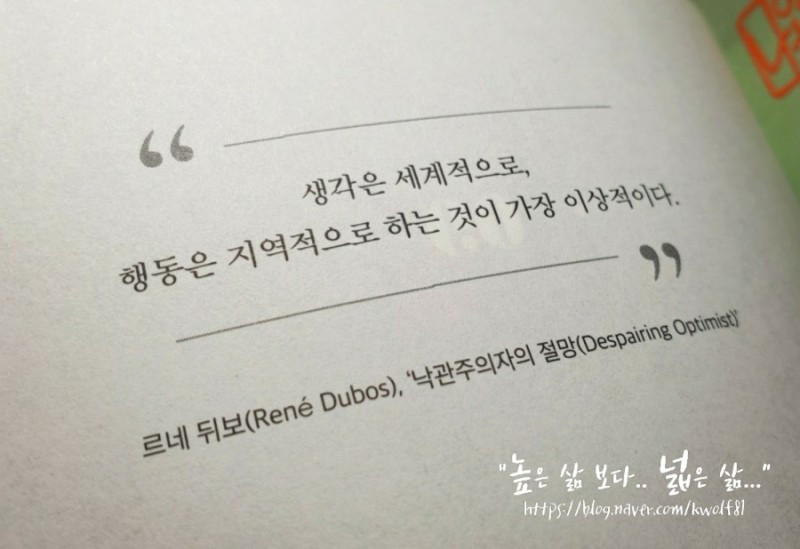 “
생각은 세계적으로,
행동은 지역적으로 하는 것이 가장 이상적이다.
”
르네 뒤보(René Dubos), ‘낙관주의자의 절망(Despairing Optimist)’
"높은 삶 보다.. 넓은 삶..."
https://blog.naver.com/kwolf81